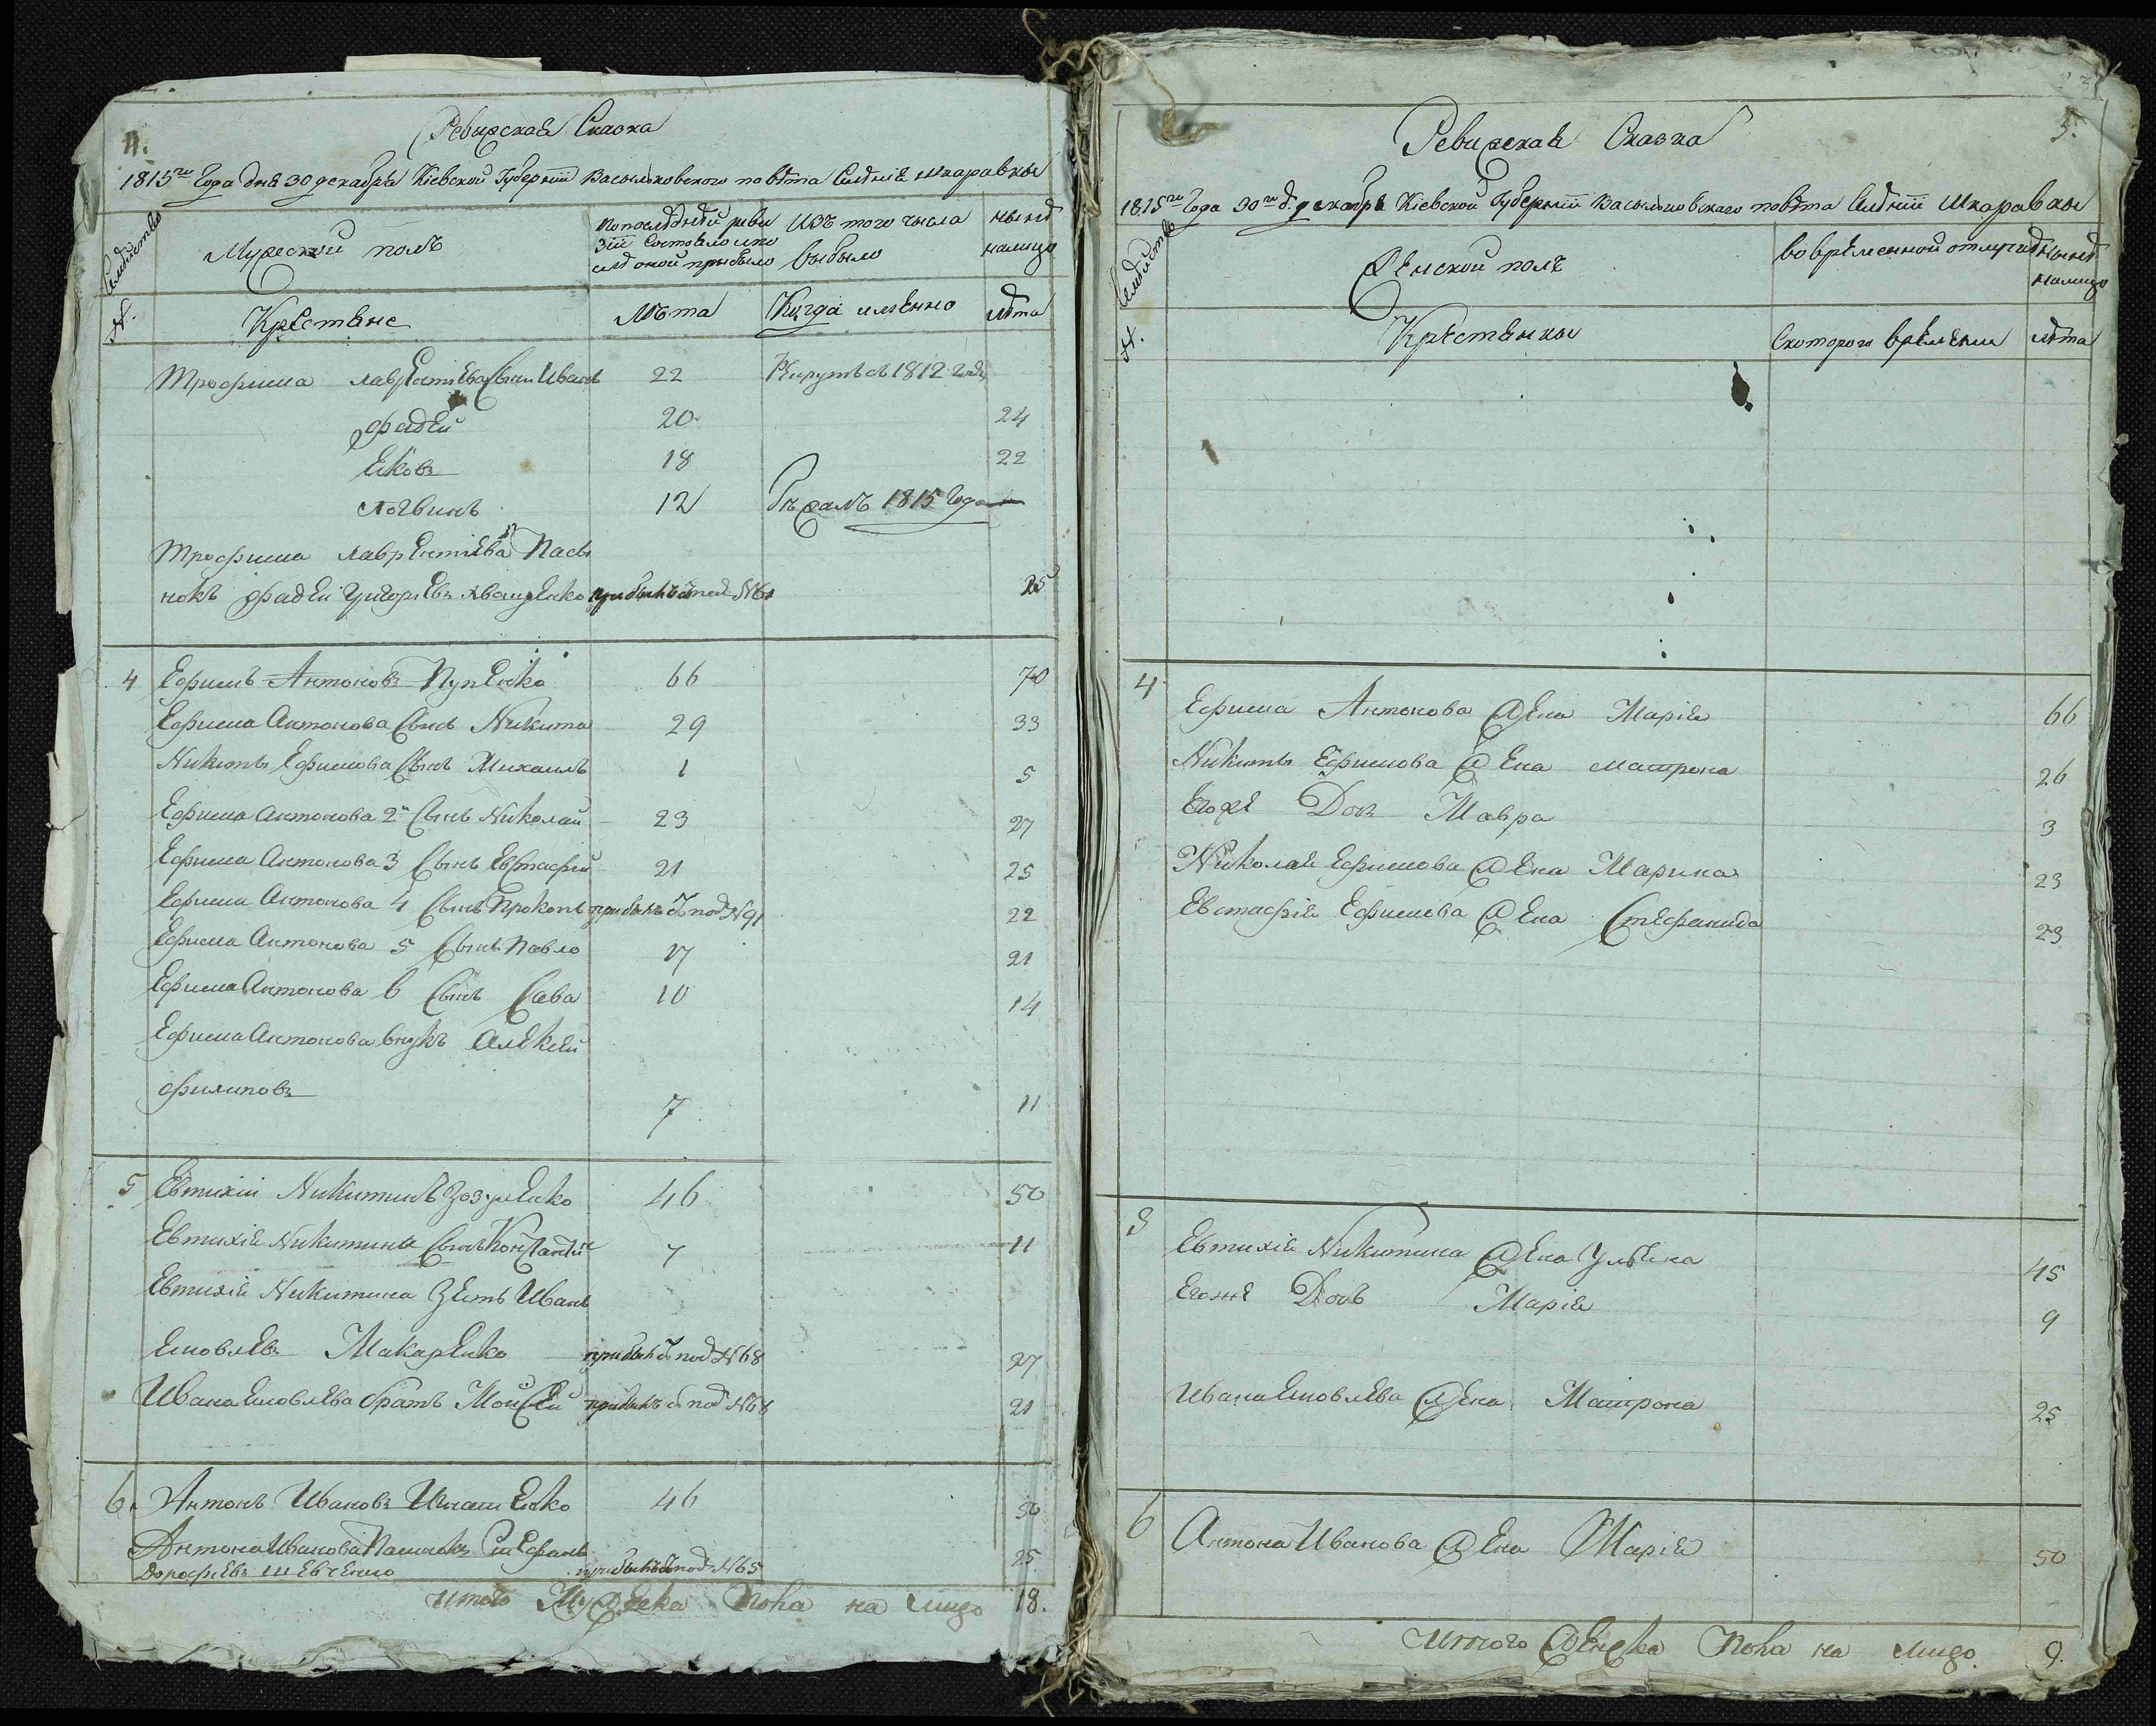 4.
Ревизская Сказка
1815го Года дня 30 декабря Кіевской Губерніи Васильковского повѣта Селенія Шкаравки
Семейство
Мужеской полъ
По последней реви
зіи состояло или
после оной прибыло
Изъ того числа
выбыло
ныне
налицо
№.
Крестяне
Лѣта
Когда именно
лѣта
Трофима Лаврентіева Сынъ Иванъ 22 1812 Года
Фадей 20 24
Яковъ 18 22
Логвинъ 12 1815 Года
Трофима Лаврентіева Пасы
нокъ Фадей Григорьевъ прибылъ под №61 25
4 Ефимъ Антоновъ Пупенко 66 70
Ефима Антонова Сынъ Никита 29 33
Никиты Ефимова Сынъ Михаилъ 1 5
Ефима Антонова 2й Сынъ Николай 23 27
Ефима Антонова 3 Сынъ Евстафій 21 25
Ефима Антонова 4 Сынъ Прокопъ прибылъ под №91 22
Ефима Антонова 5 Сынъ Павло 17 21
Ефима Антонова 6 Сынъ Сава 10 14
Ефима Антонова внукъ Алексей
Филиповъ 7 11
5 Евтихій Никитинъ Зозуленко 46 50
Евтихія Никитина Сынъ Констандій 7 11
Евтихія Никитина Зять Иванъ
Яковлевъ Макаренко прибылъ под №68 27
Ивана Яковлева братъ Мойсей прибылъ под №68 21
6. Антонъ Ивановъ Игнашенко 46 50
Антона Иванова Пасынокъ Стефанъ
Дорофѣевъ Шевченко прибылъ под №65 25
Итого Мужеска Пола на лицо 18.
5.
Ревизская Сказка
1815го Года 30го д. декабря Кіевской Губерніи Васильковскаго повѣта Селеніи Шкаравки
Семейство
Женской полъ
во временной отлучке
ныне
налицо
№.
Крестянки
Скоторого времени
лѣта
4 Ефима Антонова Жена Марія 66
Никиты Ефимова Жена Матрона 26
Егоже Дочъ Мавра 3
Николая Ефимова Жена Марина 23
Евстафія Ефимова Жена Стефанида 23
5 Евтихія Никитина Жена Уляна 45
Егоже Дочъ Марія 9
Ивана Яковлева Жена Матрона 25
6 Антона Иванова Жена Марія 50
Итого Женска Пола на лицо 9.